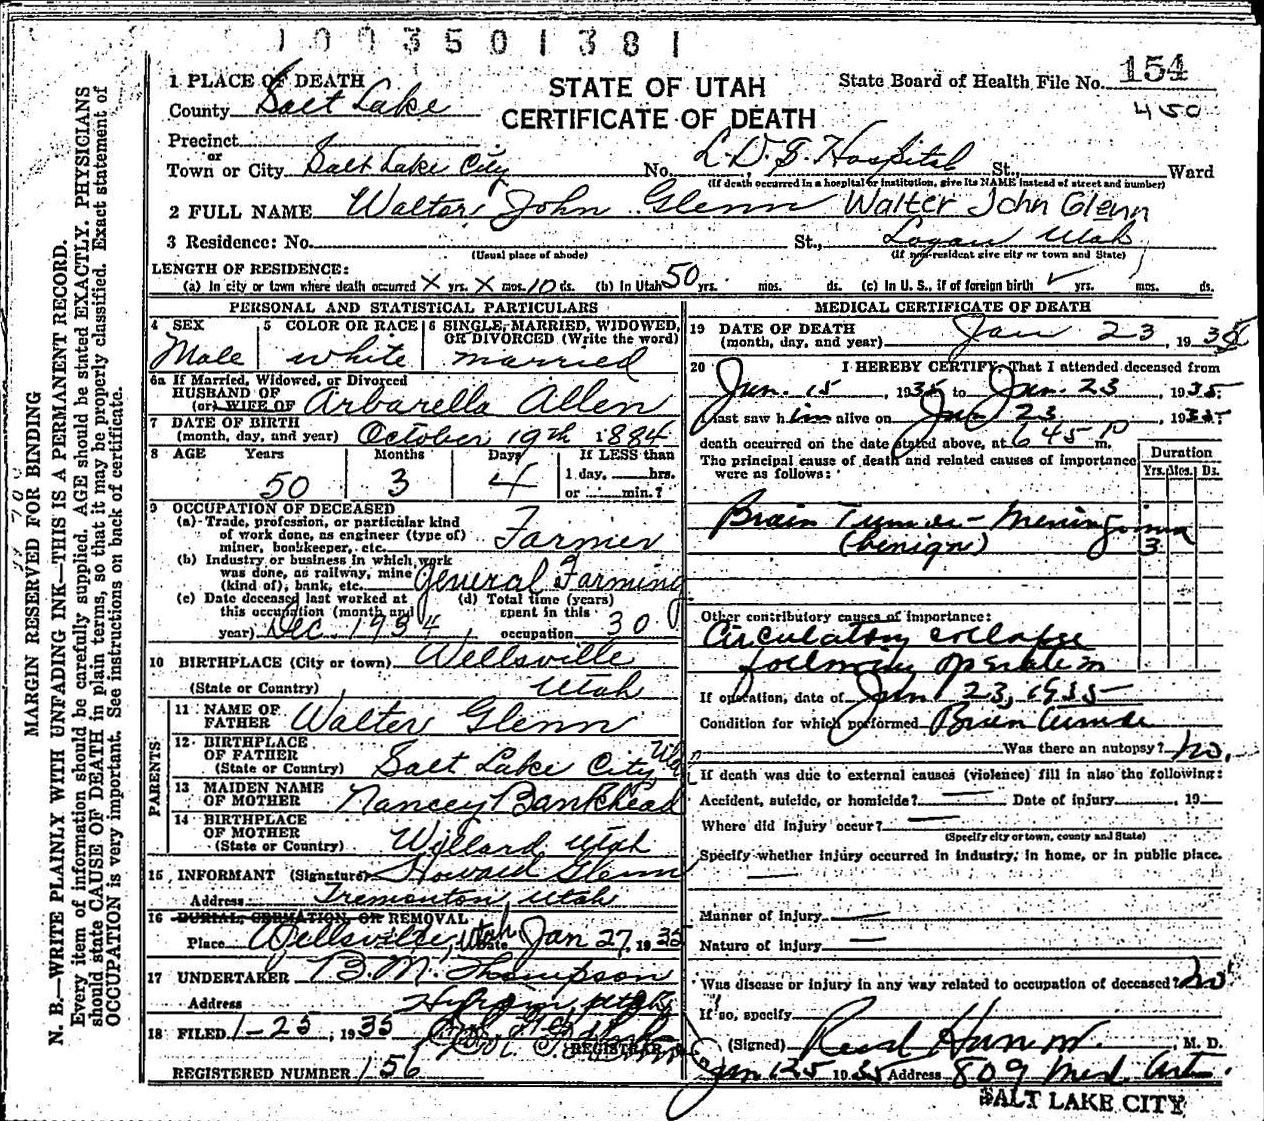 1003501381
1 PLACE OF DEATH
STATE OF UTAH
CERTIFICATE OF DEATH
State Board of Health File No. 154
450
County Salt Lake
Precinct
or
Town or City Salt Lake City No. L.D.S. Hospital St., Ward
(If death occurred in a hospital or institution, give its NAME instead of street and number)
2 FULL NAME Walter John Glenn Walter John Glenn
3 Residence: No. St., Logan Utah
(Usual place of abode) (If non-resident give city or town and State)
LENGTH OF RESIDENCE:
(a) In city or town where death occurred X yrs. X mos. 10 ds. (b) In Utah 50 yrs. mos. ds. (c) In U. S., if of foreign birth yrs. mos. ds.
PERSONAL AND STATISTICAL PARTICULARS
4 SEX Male
5 COLOR OR RACE white
6 SINGLE, MARRIED, WIDOWED, OR DIVORCED (Write the word) married
6a If Married, Widowed, or Divorced
HUSBAND OF
(or) WIFE OF Arbarella Allen
7 DATE OF BIRTH
(month, day, and year) October 19th 1884
8 AGE Years Months Days If LESS than
50 3 4 1 day, hrs.
or min.?
9 OCCUPATION OF DECEASED
(a) Trade, profession, or particular kind
of work done, as engineer (type of)
miner, bookkeeper, etc. Farmer
(b) Industry or business in which work
was done, as railway, mine
(kind of), bank, etc. General Farming
(c) Date deceased last worked at
this occupation (month and
year) Dec. 1934
(d) Total time (years)
spent in this
occupation 30
10 BIRTHPLACE (City or town) Wellsville
(State or Country) Utah
PARENTS
11 NAME OF
FATHER Walter Glenn
12 BIRTHPLACE
OF FATHER
(State or Country) Salt Lake City Utah
13 MAIDEN NAME
OF MOTHER Nancey Bankhead
14 BIRTHPLACE
OF MOTHER
(State or Country) Willard Utah
15 INFORMANT (Signature) Howard Glenn
Address Tremonton, Utah
16 BURIAL, CREMATION, OR REMOVAL
Place Wellsville, Utah Date Jan 27, 1935
17 UNDERTAKER B.M. Thompson
Address Hyrum, Utah
18 FILED 1-25, 1935
REGISTRAR
REGISTERED NUMBER 156
MEDICAL CERTIFICATE OF DEATH
19 DATE OF DEATH
(month, day, and year) Jan 23, 1935
20 I HEREBY CERTIFY, That I attended deceased from
Jan. 15, 1935 to Jan. 23, 1935;
I last saw him alive on Jan 23, 1935;
death occurred on the date stated above, at 645 P m.
The principal cause of death and related causes of importance
were as follows:
Duration
Yrs. Mos. Ds.
Brain Tumor - Meningioma
(benign) 3
Other contributory causes of importance:
Circulatory collapse
following operation
If operation, date of Jan 23, 1935
Condition for which performed Brain tumor
Was there an autopsy? no.
If death was due to external causes (violence) fill in also the following:
Accident, suicide, or homicide? — Date of injury , 19
Where did injury occur? —
(Specify city or town, county and State)
Specify whether injury occurred in industry, in home, or in public place.
—
Manner of injury —
Nature of injury —
Was disease or injury in any way related to occupation of deceased? no
If so, specify
(Signed) , M. D.
Jan 25 1935 Address 809 Med. Arts.
SALT LAKE CITY
MARGIN RESERVED FOR BINDING
N. B.—WRITE PLAINLY WITH UNFADING INK—THIS IS A PERMANENT RECORD.
Every item of information should be carefully supplied. AGE should be stated EXACTLY. PHYSICIANS
should state CAUSE OF DEATH in plain terms, so that it may be properly classified. Exact statement of
OCCUPATION is very important. See instructions on back of certificate.